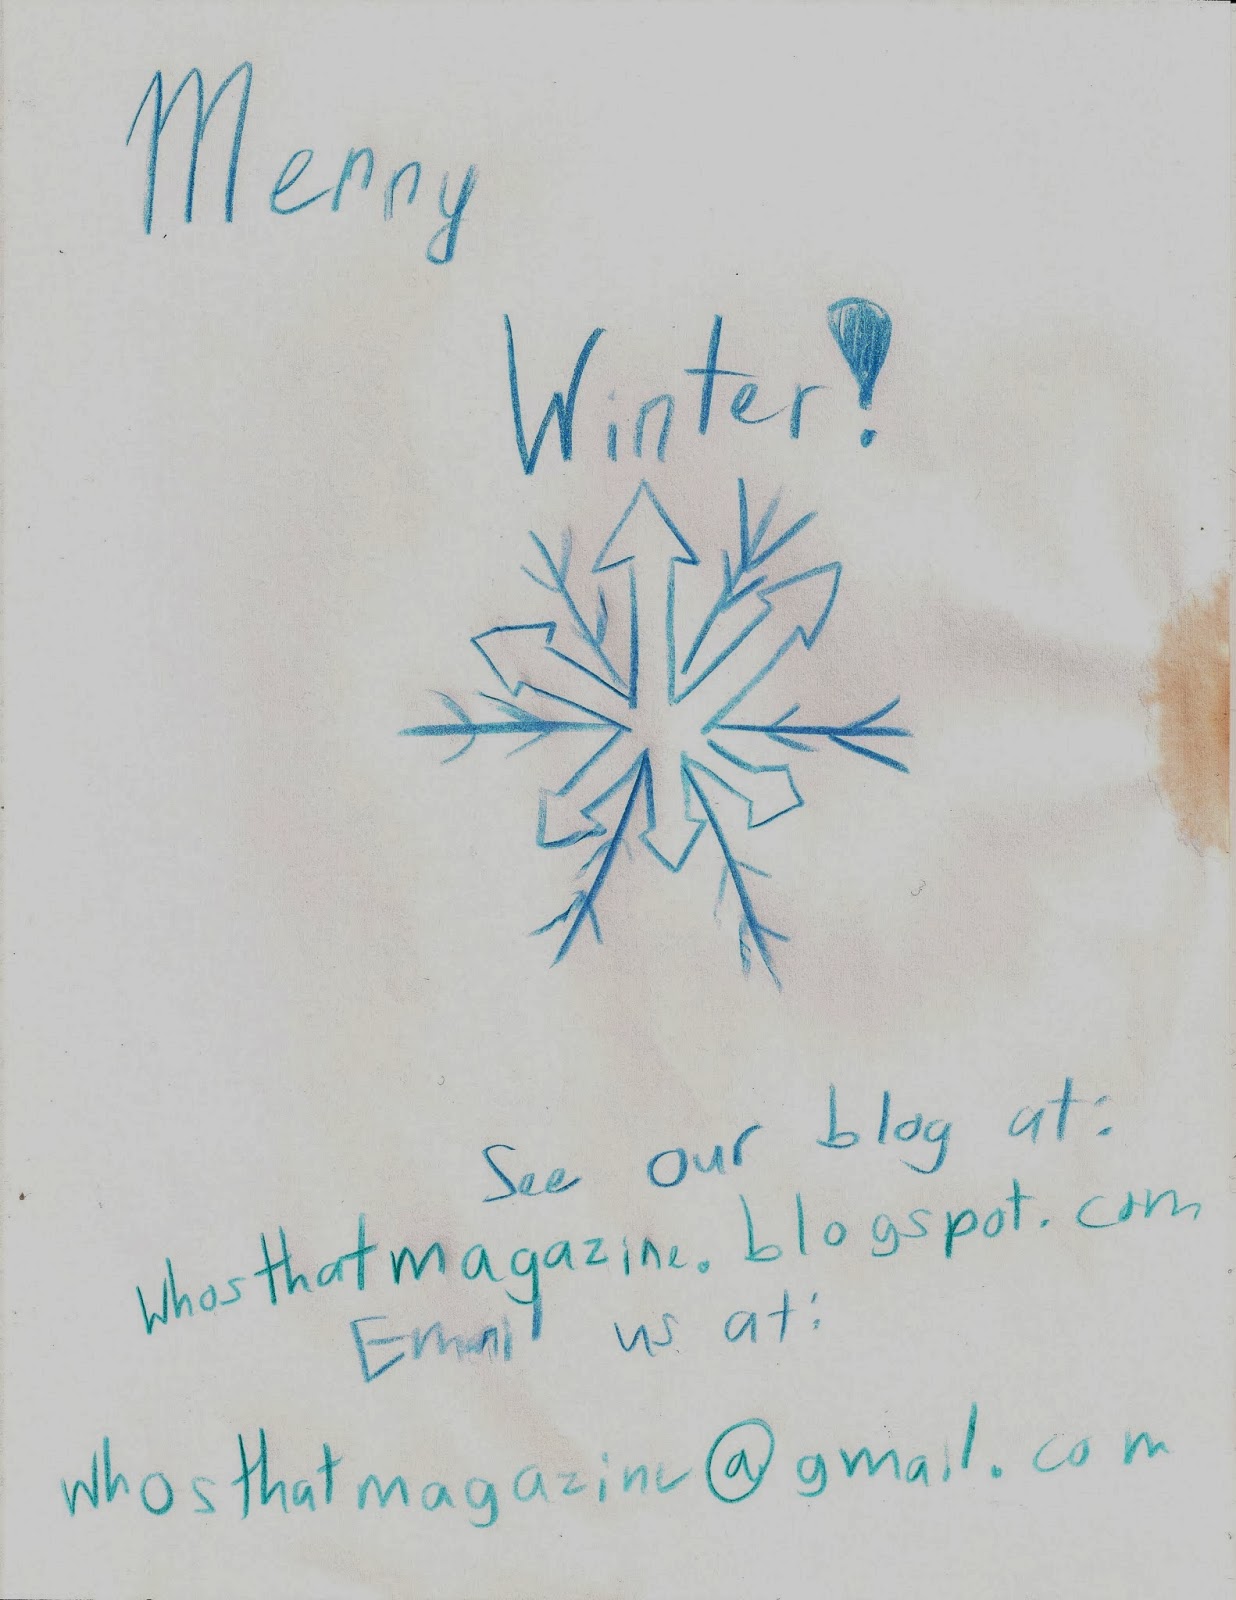 Merry
Winter!
See our blog at:
whosthatmagazine.blogspot.com
Email us at:
whosthatmagazine@gmail.com